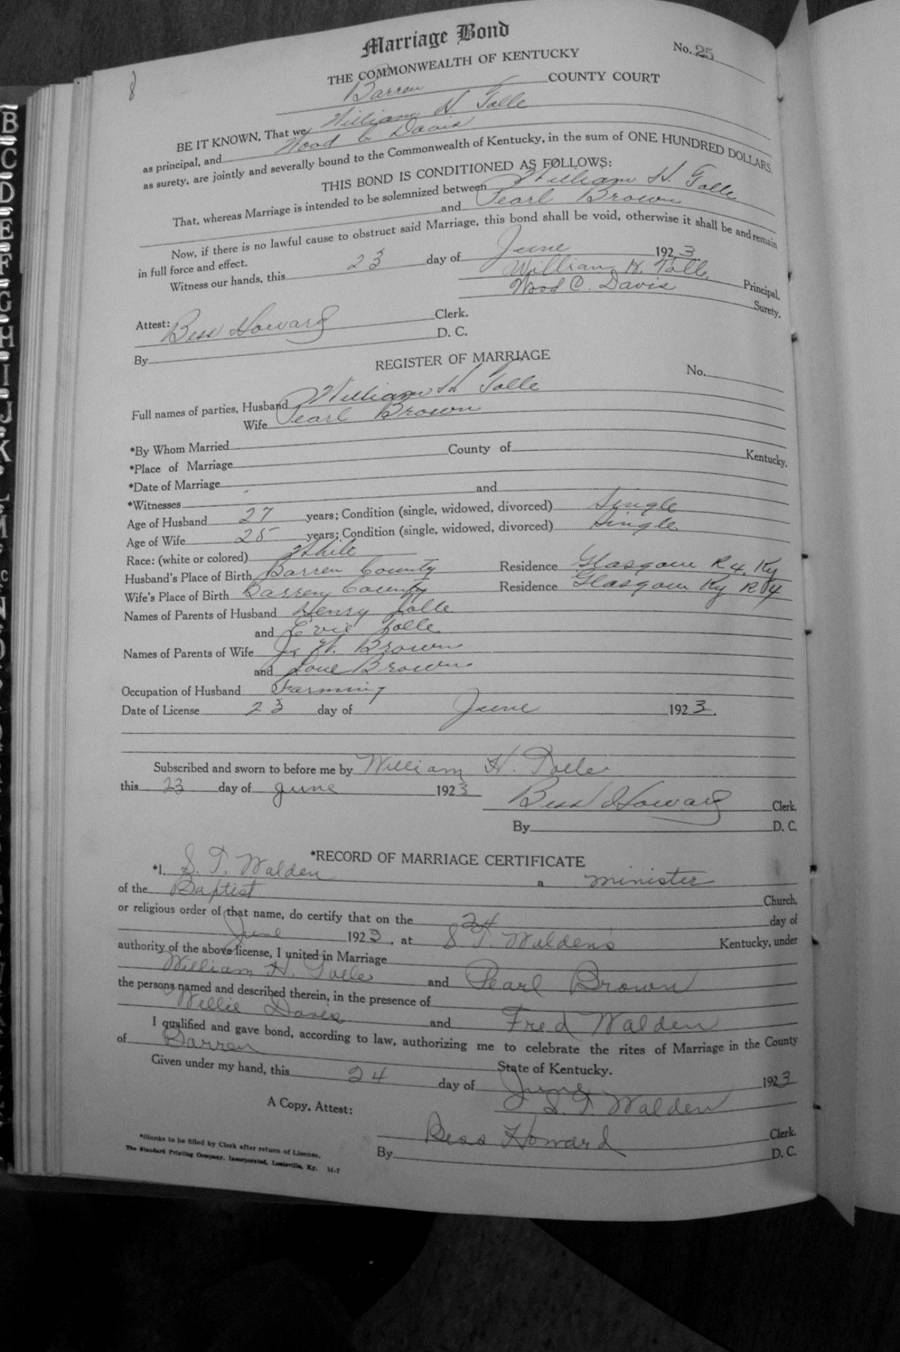 8
Marriage Bond
No. 25
THE COMMONWEALTH OF KENTUCKY
Barren COUNTY COURT
BE IT KNOWN, That we William H Tolle
as principal, and Wood C Davis
as surety, are jointly and severally bound to the Commonwealth of Kentucky, in the sum of ONE HUNDRED DOLLARS.
THIS BOND IS CONDITIONED AS FOLLOWS:
That, whereas Marriage is intended to be solemnized between William H. Tolle
and Pearl Brown
Now, if there is no lawful cause to obstruct said Marriage, this bond shall be void, otherwise it shall be and remain
in full force and effect.
Witness our hands, this 23 day of June 1923
William H. Tolle Principal.
Wood C. Davis Surety.
Attest: Bess Howard Clerk.
By D. C.
REGISTER OF MARRIAGE
No.
Full names of parties, Husband William H Tolle
Wife Pearl Brown
*By Whom Married
*Place of Marriage County of Kentucky.
*Date of Marriage
*Witnesses and
Age of Husband 27 years; Condition (single, widowed, divorced) Single
Age of Wife 25 years; Condition (single, widowed, divorced) Single
Race: (white or colored) White
Husband's Place of Birth Barren County Residence Glasgow R4, Ky
Wife's Place of Birth Barren County Residence Glasgow Ky R4
Names of Parents of Husband Henry Tolle
and Evie Tolle
Names of Parents of Wife J. W. Brown
and Brown
Occupation of Husband Farming
Date of License 23 day of June 1923.
Subscribed and sworn to before me by William H. Tolle
this 23 day of June 1923
Bess Howard Clerk.
By D. C.
*RECORD OF MARRIAGE CERTIFICATE
*I, S. T. Walden a minister
of the Baptist Church,
or religious order of that name, do certify that on the 24 day of
June 1923, at S. T. Walden's Kentucky, under
authority of the above license, I united in Marriage
William H. Tolle and Pearl Brown
the persons named and described therein, in the presence of
Willie Davis and Fred Walden
I qualified and gave bond, according to law, authorizing me to celebrate the rites of Marriage in the County
of Barren State of Kentucky.
Given under my hand, this 24 day of June 1923
S. T Walden
A Copy, Attest:
Bess Howard Clerk.
By D. C.
*Blanks to be filled by Clerk after return of License.
The Standard Printing Company, Incorporated, Louisville, Ky. 16-7
B
C
D
E
F
G
H
I
J
K
L
M